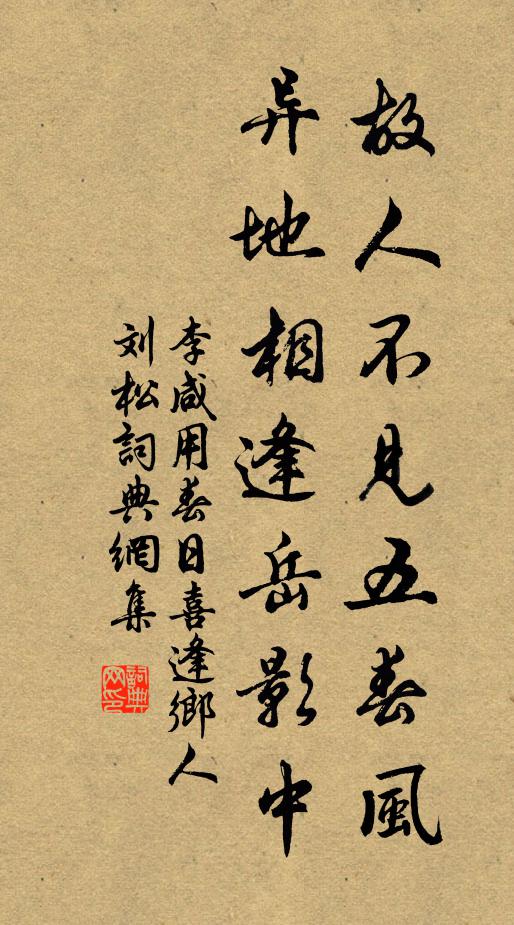 故人不见五春風
异地相逢岳影中
李咸用春日喜逢鄉人
刘松詞典網集
詞典网印